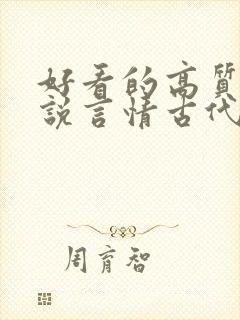 好看的高质
说言情古代
周育智